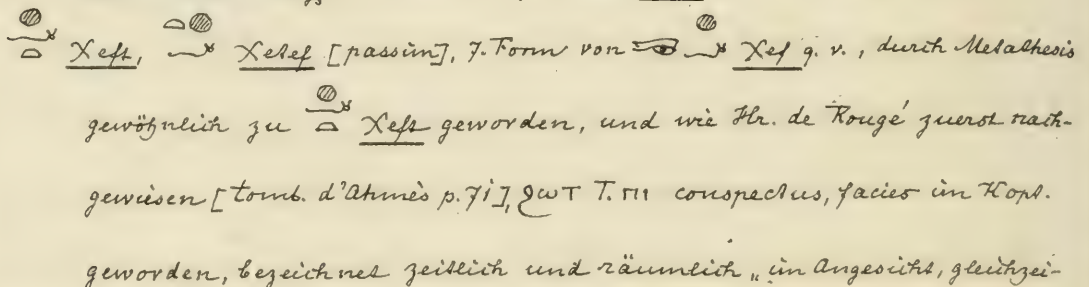 𓐍𓆑𓏏 Xeft, 𓏏𓐍𓆑 Xetef [passim], 7. Form von 𓁹𓐍𓆑 Xef q. v., durch Metathesis
gewöhnlich zu 𓐍𓆑𓏏 Xeft geworden, und wie Hr. de Rougé zuerst nach-
gewiesen [tomb. d'Ahmès p. 71], ϩωⲧ T. ⲡⲓ conspectus, facies im Kopt.
geworden, bezeichnet zeitlich und räumlich „im Angesicht, gleichzei-